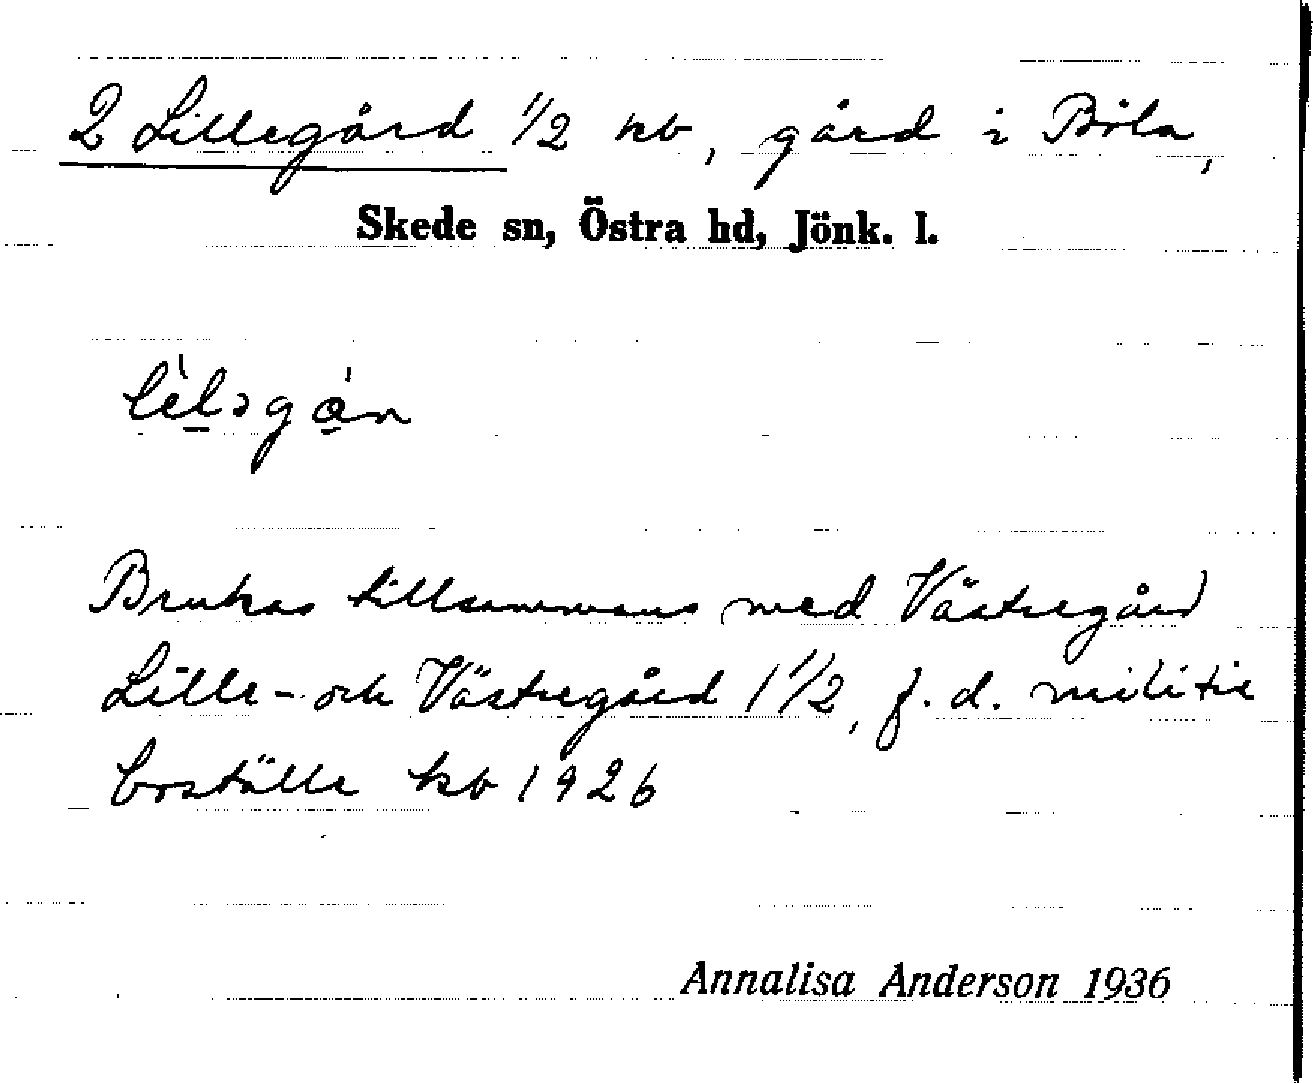 2 Lillegård 1/2 kb, gård i Böla,
Skede sn, Östra hd, Jönk. l.
Brukas tillsammans med Västregård
Lille- och Västregård 1 1/2, f. d. militie
boställe kb 1926
Annalisa Anderson 1936